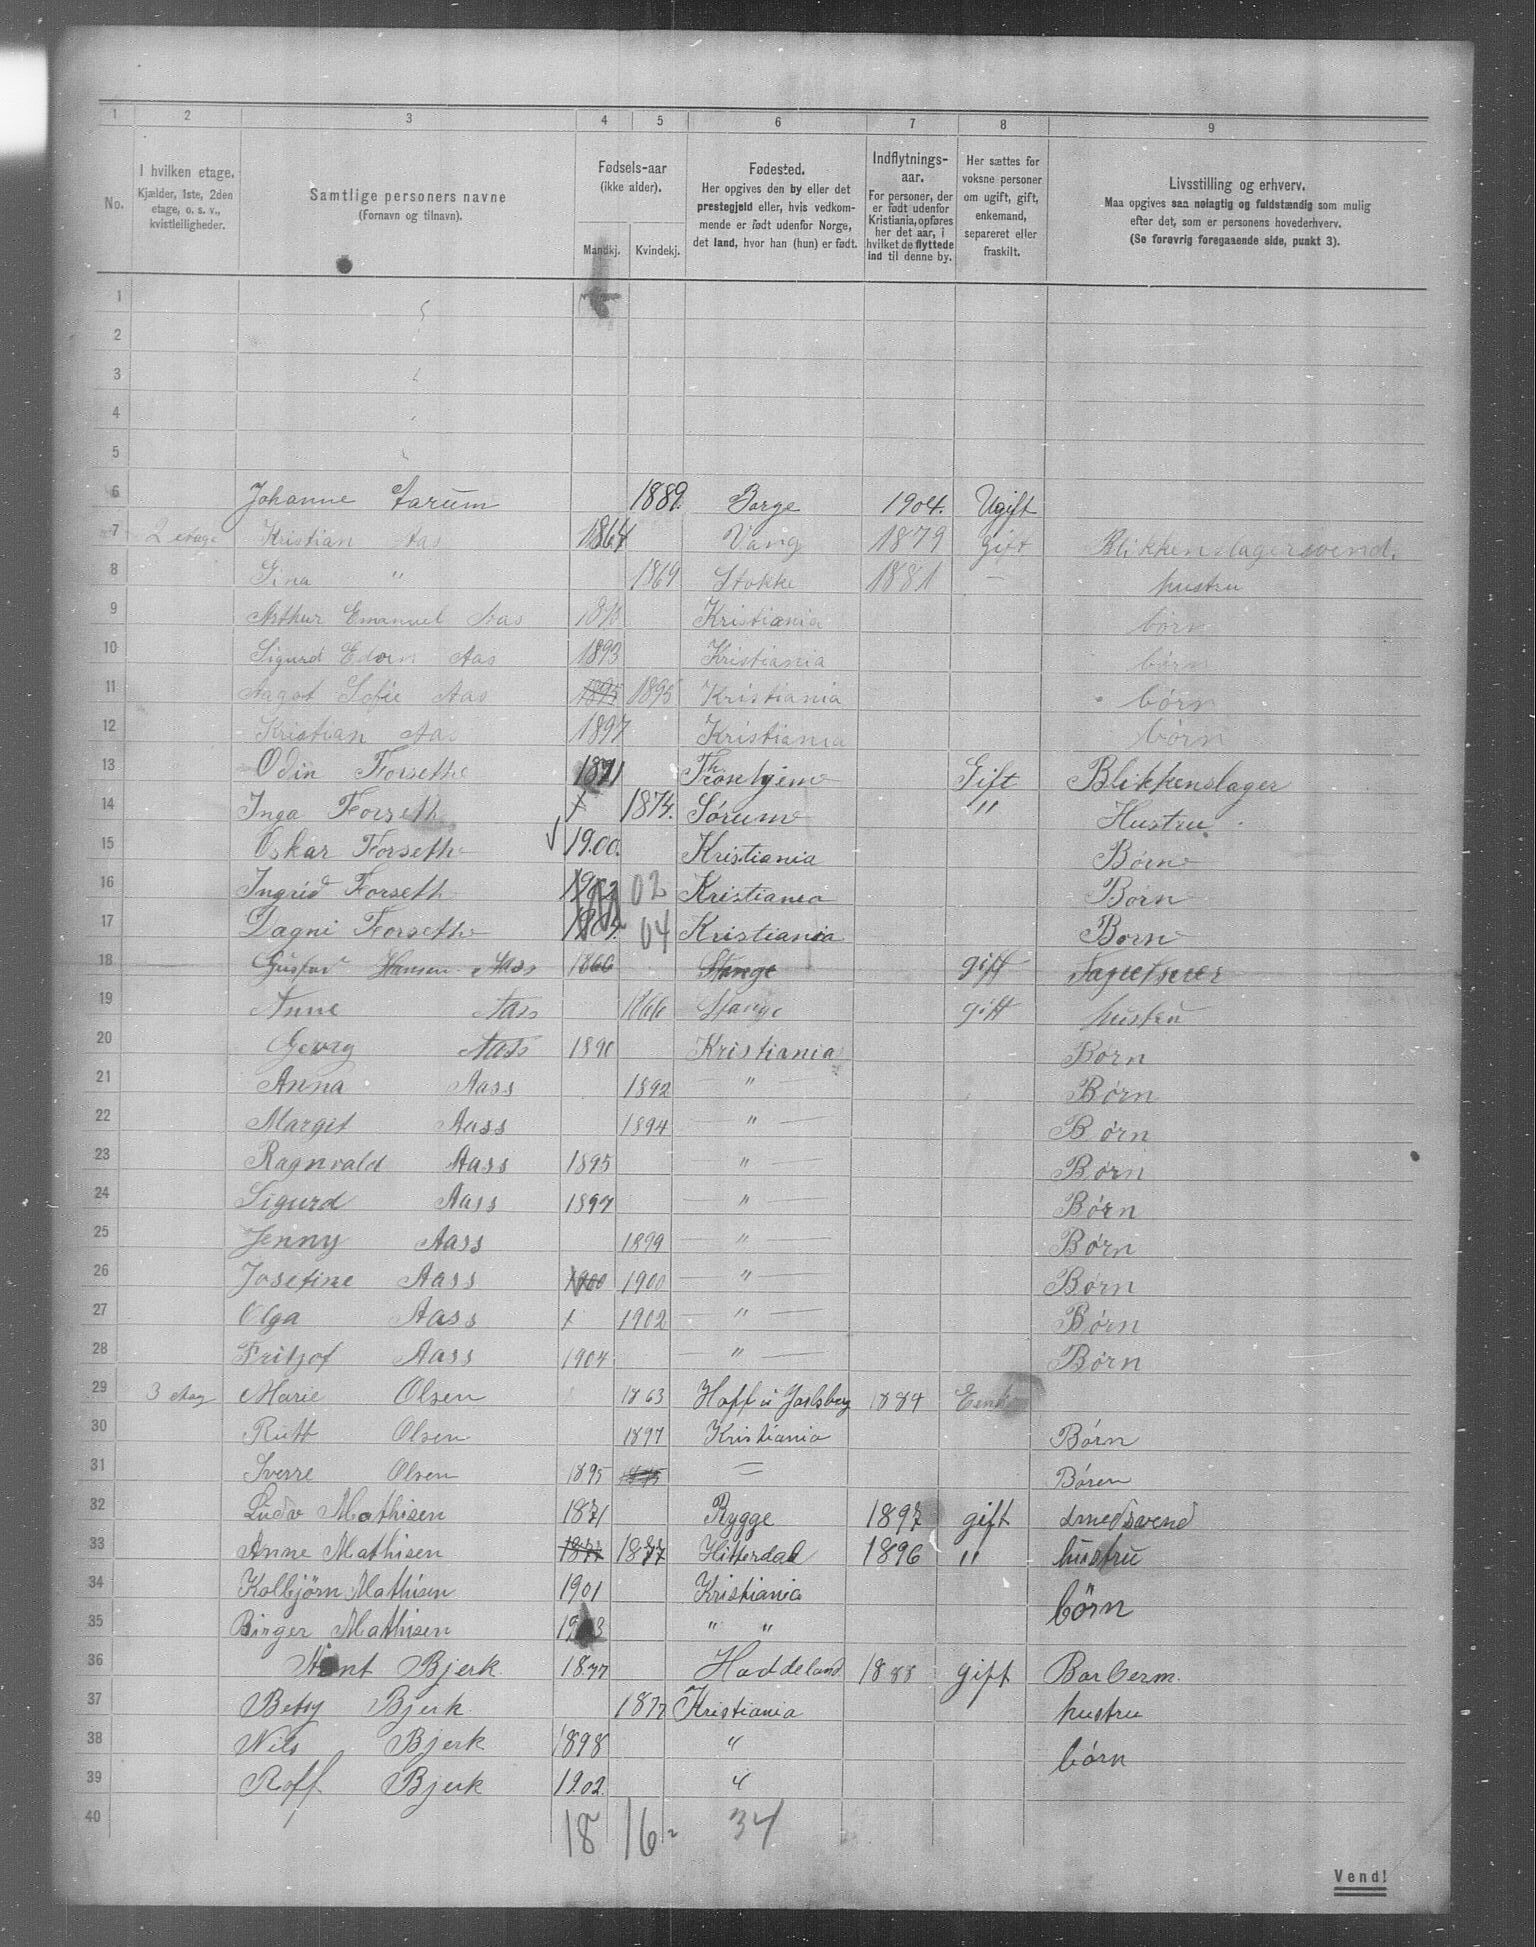 1 2 3 4 5 6 7 8 9
No.
I hvilken etage.
Kjælder, 1ste, 2den
etage, o. s. v.,
kvistleiligheder.
Samtlige personers navne
(Fornavn og tilnavn).
Fødsels-aar
(ikke alder).
Mandkj. Kvindekj.
Fødested.
Her opgives den by eller det
prestegjeld eller, hvis vedkom-
mende er født udenfor Norge,
det land, hvor han (hun) er født.
Indflytnings-
aar.
For personer, der
er født udenfor
Kristiania, opføres
her det aar, i
hvilket de flyttede
ind til denne by.
Her sættes for
voksne personer
om ugift, gift,
enkemand,
separeret eller
fraskilt.
Livsstilling og erhverv.
Maa opgives saa nøiagtig og fuldstændig som mulig
efter det, som er personens hovederhverv.
(Se forøvrig foregaaende side, punkt 3).
1
2
3
4
5
6 Johanne 1889. Borge 1904. Ugift
7 2 etage Kristian Aas 1864 Vang 1879 gift Blikkenslagersvend.
8 Gina " 1869 Stokke 1881 – hustru
9 Arthur Emanuel Aas Kristiania børn
10 Sigurd Aas 1893 Kristiania børn
11 Aagot Sofie Aas 1895 1895 Kristiania børn
12 Kristian Aas 1897 Kristiania børn
13 Odin Forseth 1871 Gift Blikkenslager
14 Inga Forseth 1874. Sørum " Hustru.
15 Oskar Forseth 1900. Kristiania Børn
16 Ingrid Forseth 02 Kristiania Børn
17 Dagni Forseth 04 Kristiania Børn
18 Gustav Hansen Aass 1866 Stange gift
19 Anne Aass 1866 Stange gift hustru
20 Georg Aass 1890 Kristiania Børn
21 Anna Aass 1892 — " — Børn
22 Margit Aass 1894 — " — Børn
23 Ragnvald Aass 1895 — " — Børn
24 Sigurd Aass 1897 — " — Børn
25 Jenny Aass 1899 — " — Børn
26 Josefine Aass 1900 1900 — " — Børn
27 Olga Aass 1902 — " — Børn
28 Fritjof Aass 1904 — " — Børn
29 3 etag Marie Olsen 1863 Hoff i Jarlsberg 1884 Enke
30 Rutt Olsen 1897 Kristiania Børn
31 Sverre Olsen 1895 1895 — Børen
32 Ludv Mathisen 1871 Rygge 1897 gift smedsvend
33 Anne Mathisen 1877 1877 Hitterdal 1896 " hustru
34 Kolbjörn Mathisen 1901 Kristiania börn
35 Birger Mathisen 1903 " "
36 Bjerk 1877 Haddeland 1888 gift Barberm.
37 Betsy Bjerk 1877 Kristiania hustru
38 Nils Bjerk 1898 " børn
39 Roff Bjerk 1902. "
40
18 16 34
Vend!